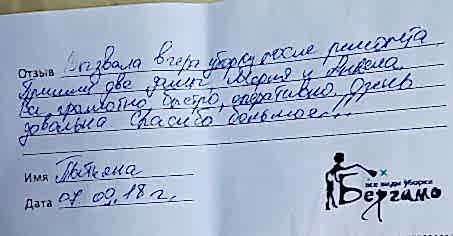 Отзыв Вызвала вчера уборку после ремонта
Пришли две дамы Мария и Анжела
Все грамотно быстро, оперативно Очень
довольна Спасибо большое!!!
Имя Татьяна
Дата 07 09.18 г.
все виды уборки
Бергамо